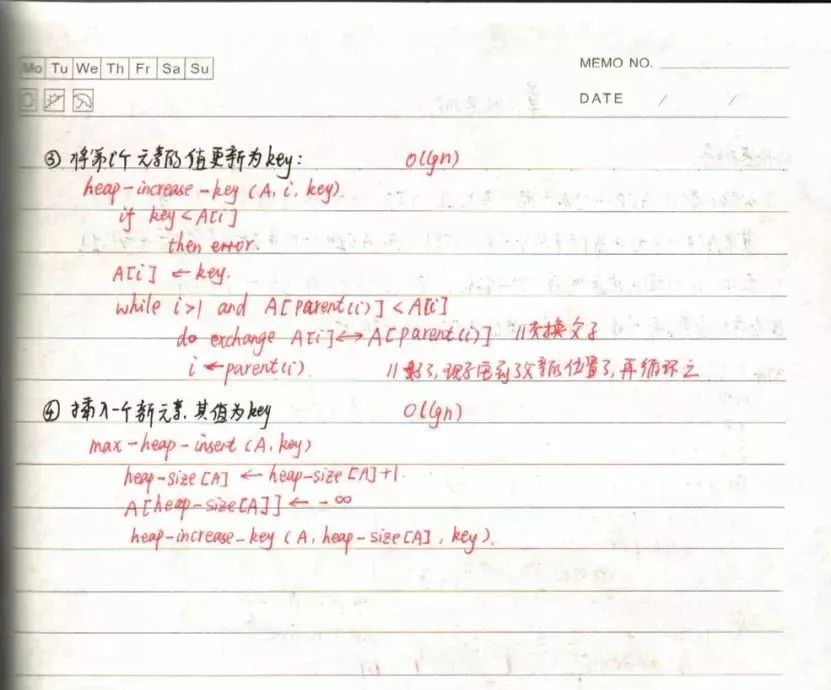 Mo Tu We Th Fr Sa Su
MEMO NO.
DATE / /
③ 将第i个元素的值更新为key: O(lgn)
heap-increase-key (A, i, key)
if key < A[i]
then error.
A[i] ← key.
while i>1 and A[parent(i)] < A[i]
do exchange A[i] ↔ A[parent(i)] //交换父子
i ← parent(i). //了,现子到了父亲的位置了,再循环之
④ 插入一个新元素,其值为key O(lgn)
max-heap-insert (A, key)
heap-size[A] ← heap-size[A]+1.
A[heap-size[A]] ← -∞
heap-increase-key (A, heap-size[A], key).